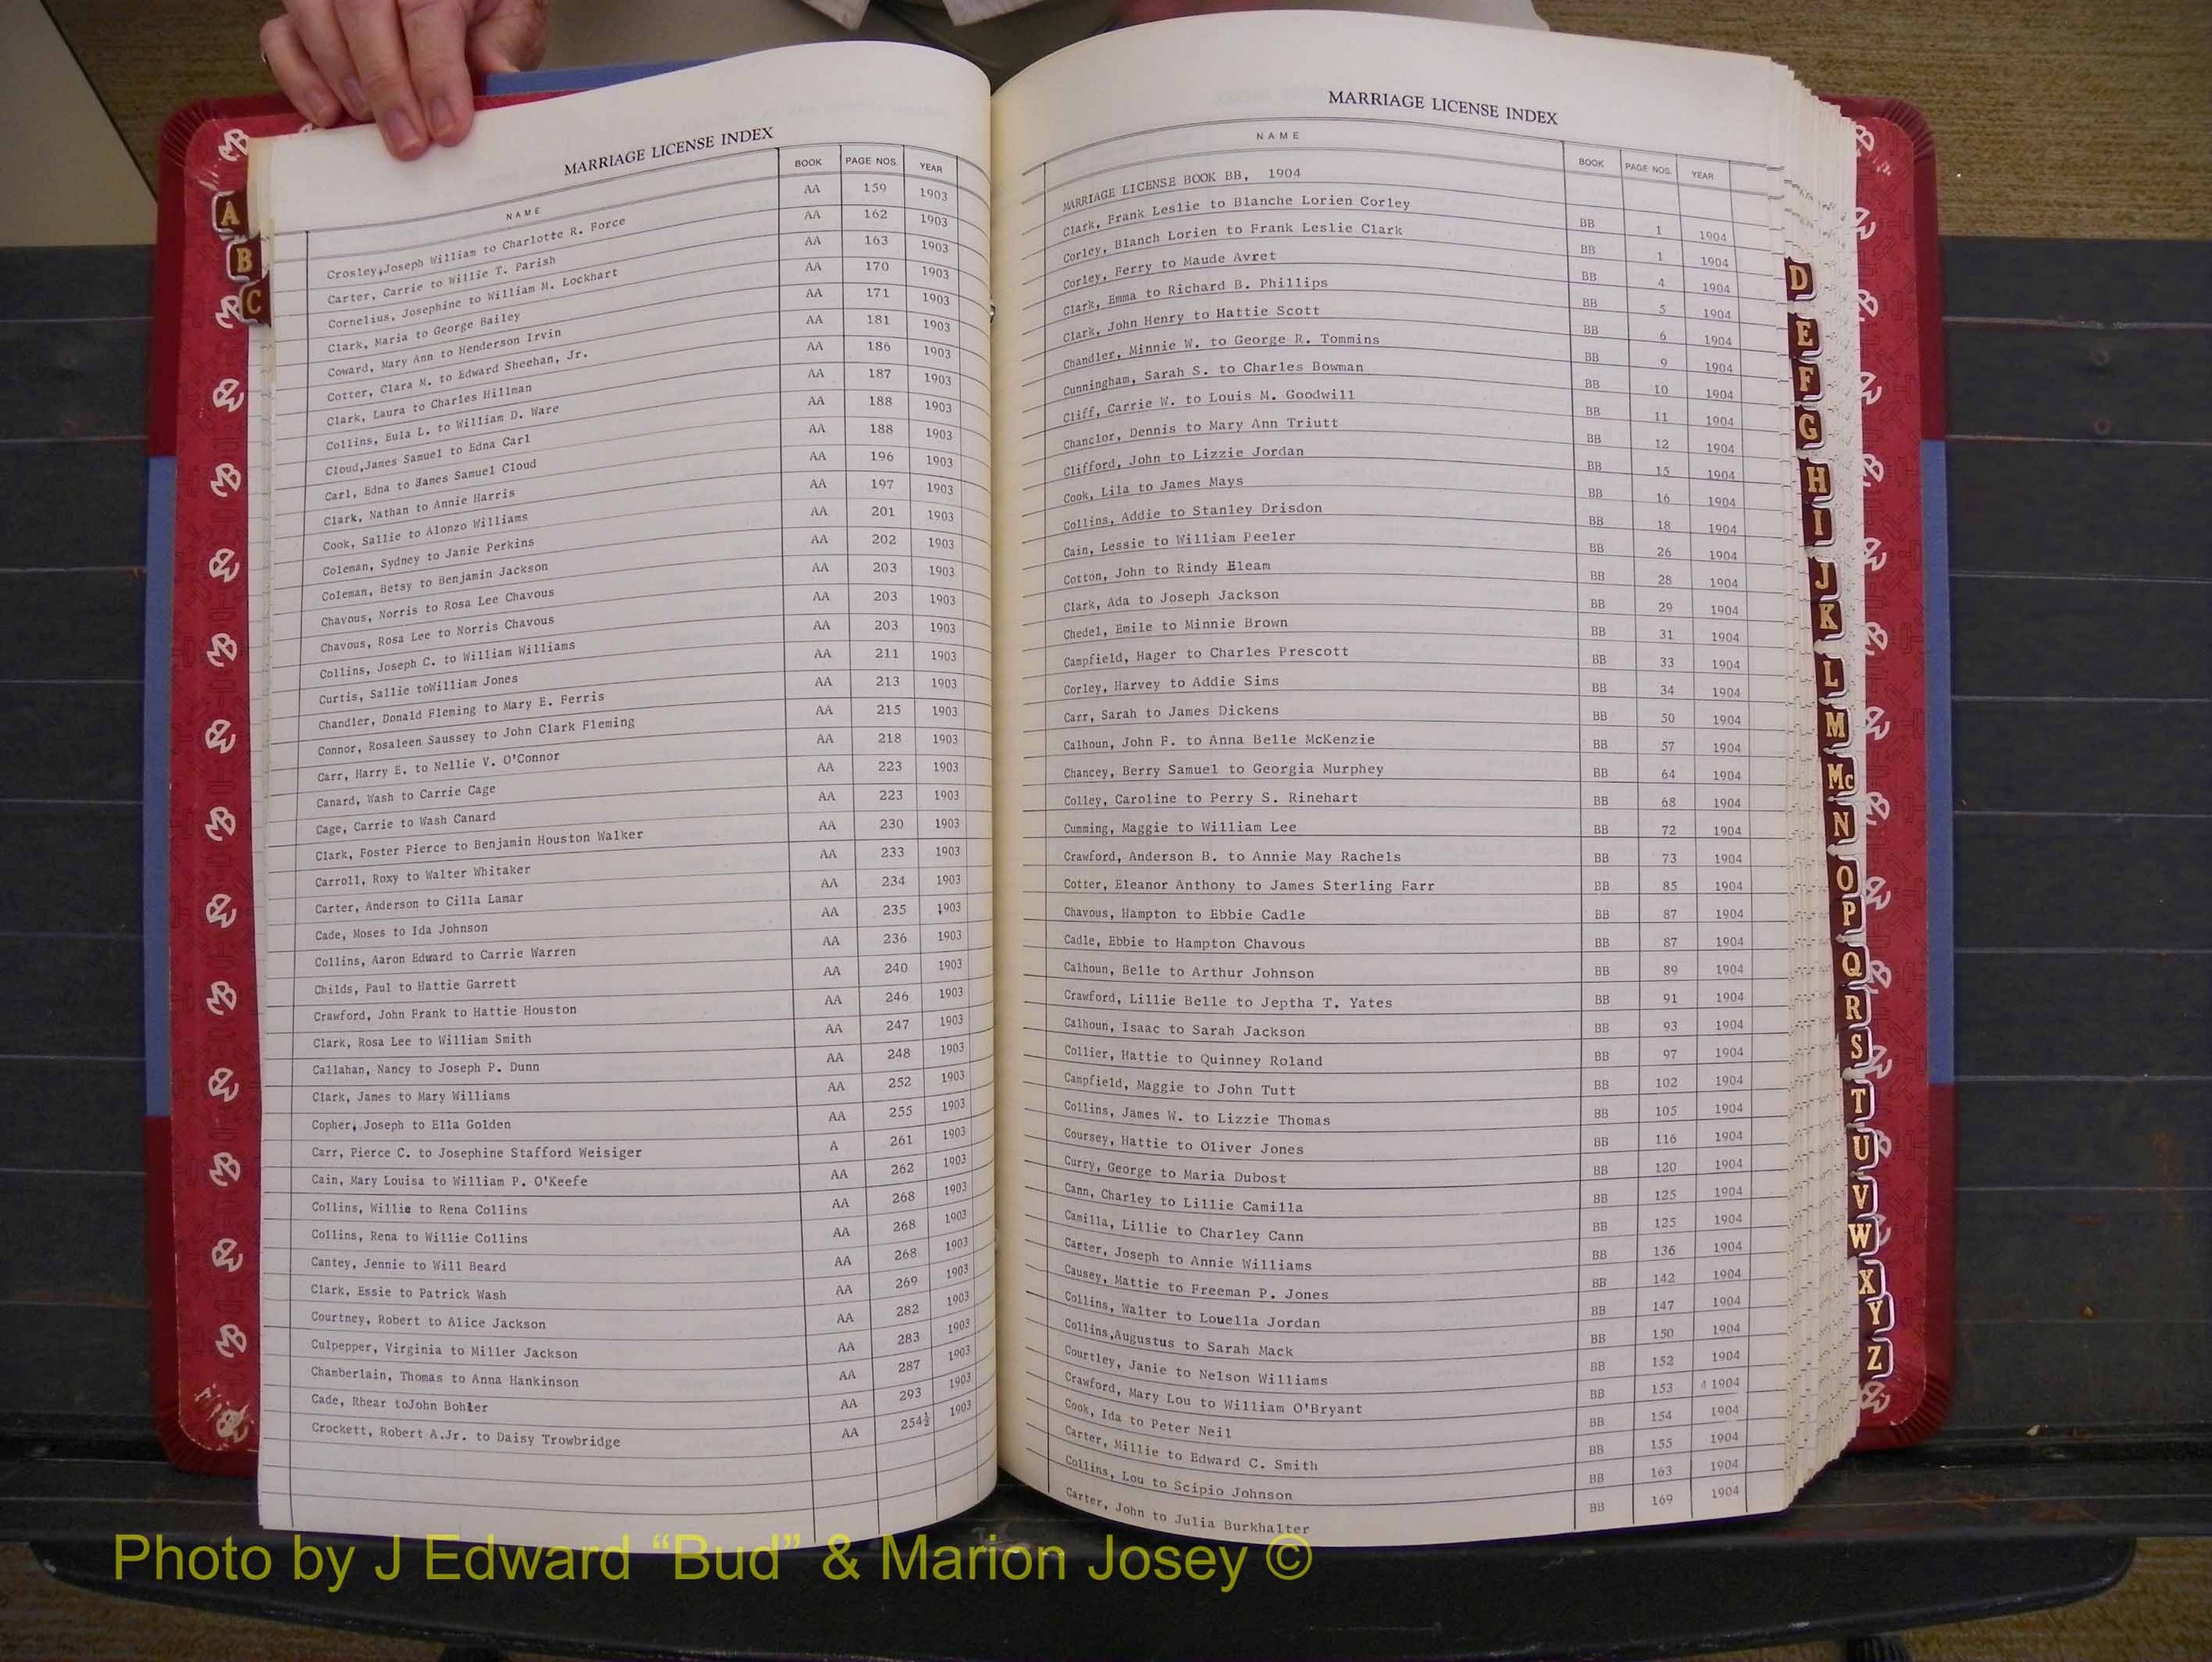 MARRIAGE LICENSE INDEX
NAME BOOK PAGE NOS. YEAR
Crosley,Joseph William to Charlotte R. Force AA 159 1903
Carter, Carrie to Willie T. Parish AA 162 1903
Cornelius, Josephine to William M. Lockhart AA 163 1903
Clark, Maria to George Bailey AA 170 1903
Coward, Mary Ann to Henderson Irvin AA 171 1903
Cotter, Clara M. to Edward Sheehan, Jr. AA 181 1903
Clark, Laura to Charles Hillman AA 186 1903
Collins, Eula L. to William D. Ware AA 187 1903
Cloud,James Samuel to Edna Carl AA 188 1903
Carl, Edna to James Samuel Cloud AA 188 1903
Clark, Nathan to Annie Harris AA 196 1903
Cook, Sallie to Alonzo Williams AA 197 1903
Coleman, Sydney to Janie Perkins AA 201 1903
Coleman, Betsy to Benjamin Jackson AA 202 1903
Chavous, Norris to Rosa Lee Chavous AA 203 1903
Chavous, Rosa Lee to Norris Chavous AA 203 1903
Collins, Joseph C. to William Williams AA 203 1903
Curtis, Sallie toWilliam Jones AA 211 1903
Chandler, Donald Fleming to Mary E. Ferris AA 213 1903
Connor, Rosaleen Saussey to John Clark Fleming AA 215 1903
Carr, Harry E. to Nellie V. O'Connor AA 218 1903
Canard, Wash to Carrie Cage AA 223 1903
Cage, Carrie to Wash Canard AA 223 1903
Clark, Foster Pierce to Benjamin Houston Walker AA 230 1903
Carroll, Roxy to Walter Whitaker AA 233 1903
Carter, Anderson to Cilla Lamar AA 234 1903
Cade, Moses to Ida Johnson AA 235 1903
Collins, Aaron Edward to Carrie Warren AA 236 1903
Childs, Paul to Hattie Garrett AA 240 1903
Crawford, John Frank to Hattie Houston AA 246 1903
Clark, Rosa Lee to William Smith AA 247 1903
Callahan, Nancy to Joseph P. Dunn AA 248 1903
Clark, James to Mary Williams AA 252 1903
Copher, Joseph to Ella Golden AA 255 1903
Carr, Pierce C. to Josephine Stafford Weisiger A 261 1903
Cain, Mary Louisa to William P. O'Keefe AA 262 1903
Collins, Willie to Rena Collins AA 268 1903
Collins, Rena to Willie Collins AA 268 1903
Cantey, Jennie to Will Beard AA 268 1903
Clark, Essie to Patrick Wash AA 269 1903
Courtney, Robert to Alice Jackson AA 282 1903
Culpepper, Virginia to Miller Jackson AA 283 1903
Chamberlain, Thomas to Anna Hankinson AA 287 1903
Cade, Rhear toJohn Bohler AA 293 1903
Crockett, Robert A.Jr. to Daisy Trowbridge AA 254½ 1903
MARRIAGE LICENSE INDEX
NAME BOOK PAGE NOS. YEAR
MARRIAGE LICENSE BOOK BB, 1904
Clark, Frank Leslie to Blanche Lorien Corley BB 1 1904
Corley, Blanch Lorien to Frank Leslie Clark BB 1 1904
Corley, Ferry to Maude Avret BB 4 1904
Clark, Emma to Richard B. Phillips BB 5 1904
Clark, John Henry to Hattie Scott BB 6 1904
Chandler, Minnie W. to George R. Tommins BB 9 1904
Cunningham, Sarah S. to Charles Bowman BB 10 1904
Cliff, Carrie W. to Louis M. Goodwill BB 11 1904
Chanclor, Dennis to Mary Ann Triutt BB 12 1904
Clifford, John to Lizzie Jordan BB 15 1904
Cook, Lila to James Mays BB 16 1904
Collins, Addie to Stanley Drisdon BB 18 1904
Cain, Lessie to William Peeler BB 26 1904
Cotton, John to Rindy Eleam BB 28 1904
Clark, Ada to Joseph Jackson BB 29 1904
Chedel, Emile to Minnie Brown BB 31 1904
Campfield, Hager to Charles Prescott BB 33 1904
Corley, Harvey to Addie Sims BB 34 1904
Carr, Sarah to James Dickens BB 50 1904
Calhoun, John F. to Anna Belle McKenzie BB 57 1904
Chancey, Berry Samuel to Georgia Murphey BB 64 1904
Colley, Caroline to Perry S. Rinehart BB 68 1904
Cumming, Maggie to William Lee BB 72 1904
Crawford, Anderson B. to Annie May Rachels BB 73 1904
Cotter, Eleanor Anthony to James Sterling Farr BB 85 1904
Chavous, Hampton to Ebbie Cadle BB 87 1904
Cadle, Ebbie to Hampton Chavous BB 87 1904
Calhoun, Belle to Arthur Johnson BB 89 1904
Crawford, Lillie Belle to Jeptha T. Yates BB 91 1904
Calhoun, Isaac to Sarah Jackson BB 93 1904
Collier, Hattie to Quinney Roland BB 97 1904
Campfield, Maggie to John Tutt BB 102 1904
Collins, James W. to Lizzie Thomas BB 105 1904
Coursey, Hattie to Oliver Jones BB 116 1904
Curry, George to Maria Dubost BB 120 1904
Cann, Charley to Lillie Camilla BB 125 1904
Camilla, Lillie to Charley Cann BB 125 1904
Carter, Joseph to Annie Williams BB 136 1904
Causey, Mattie to Freeman P. Jones BB 142 1904
Collins, Walter to Louella Jordan BB 147 1904
Collins,Augustus to Sarah Mack BB 150 1904
Courtley, Janie to Nelson Williams BB 152 1904
Crawford, Mary Lou to William O'Bryant BB 153 1904
Cook, Ida to Peter Neil BB 154 1904
Carter, Millie to Edward C. Smith BB 155 1904
Collins, Lou to Scipio Johnson BB 163 1904
Carter, John to Julia Burkhalter BB 169 1904
A
B
C
D
E
F
G
H
I
J
K
L
M
Mc
N
O
P
Q
R
S
T
U
V
W
X
Y
Z
Photo by J Edward “Bud” & Marion Josey ©